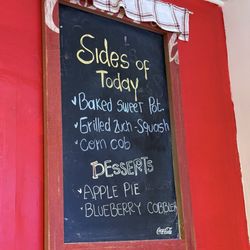 Sides of
Today
Baked Sweet Pot.
Grilled Zuch-Squash
Corn Cob
DESSERTS
APPLE PIE
BLUEBERRY COBBLER
Coca-Cola